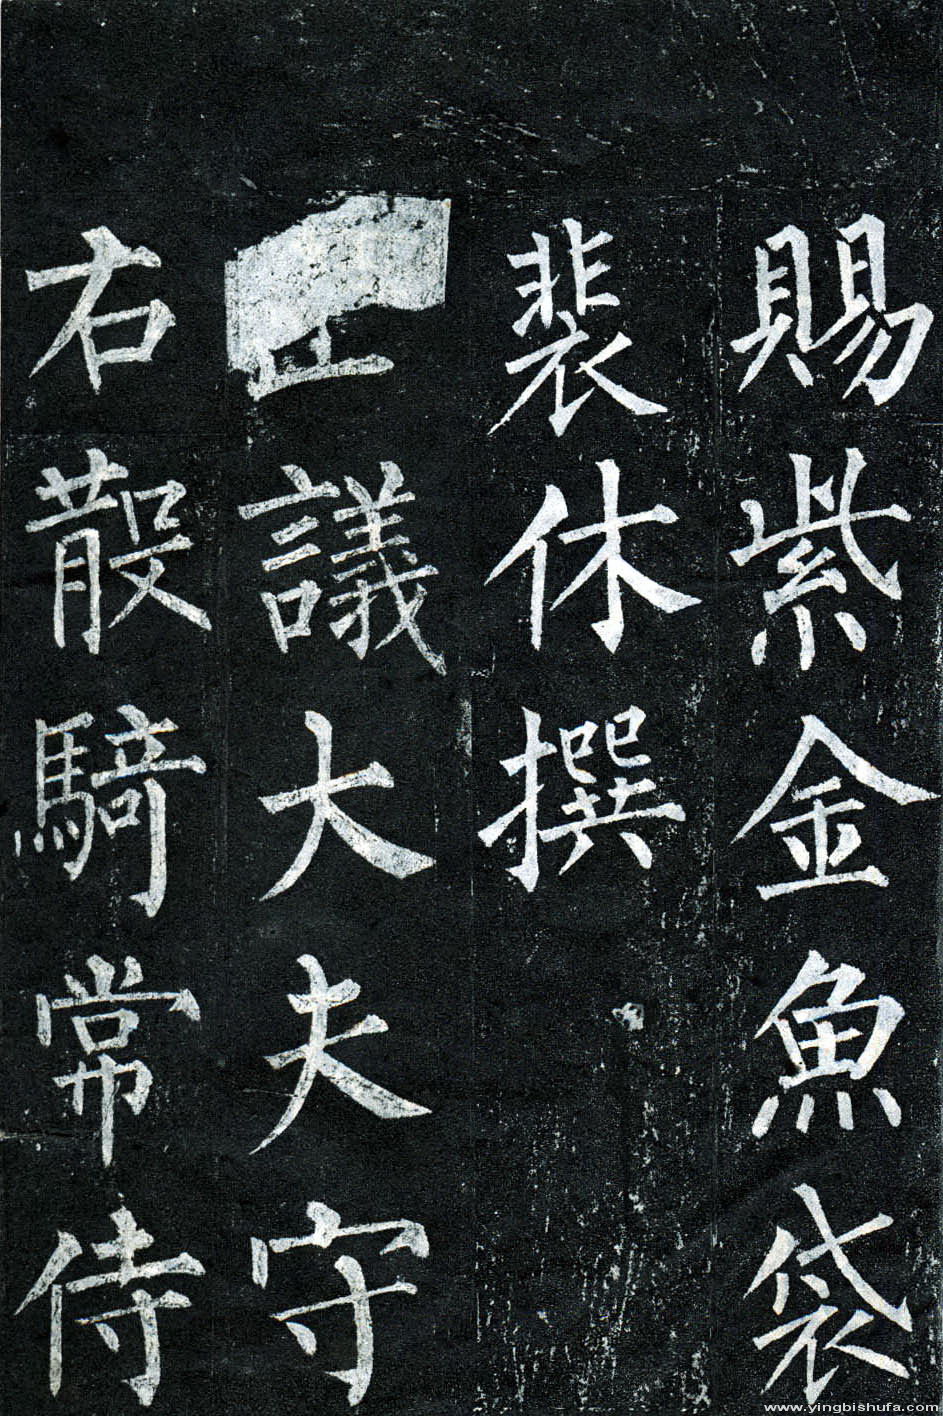 賜紫金魚袋
裴休撰
正議大夫守
右散騎常侍
www.yingbishufa.com